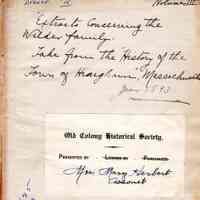 Volume III
Extracts Concerning the
Wilder family.
Take from the History of the
Town of Hingham, Massachusetts
Jan 1893
Old Colony Historical Society.
PRESENTED BY LOANED BY PURCHASED
Mrs. Mary Herbert